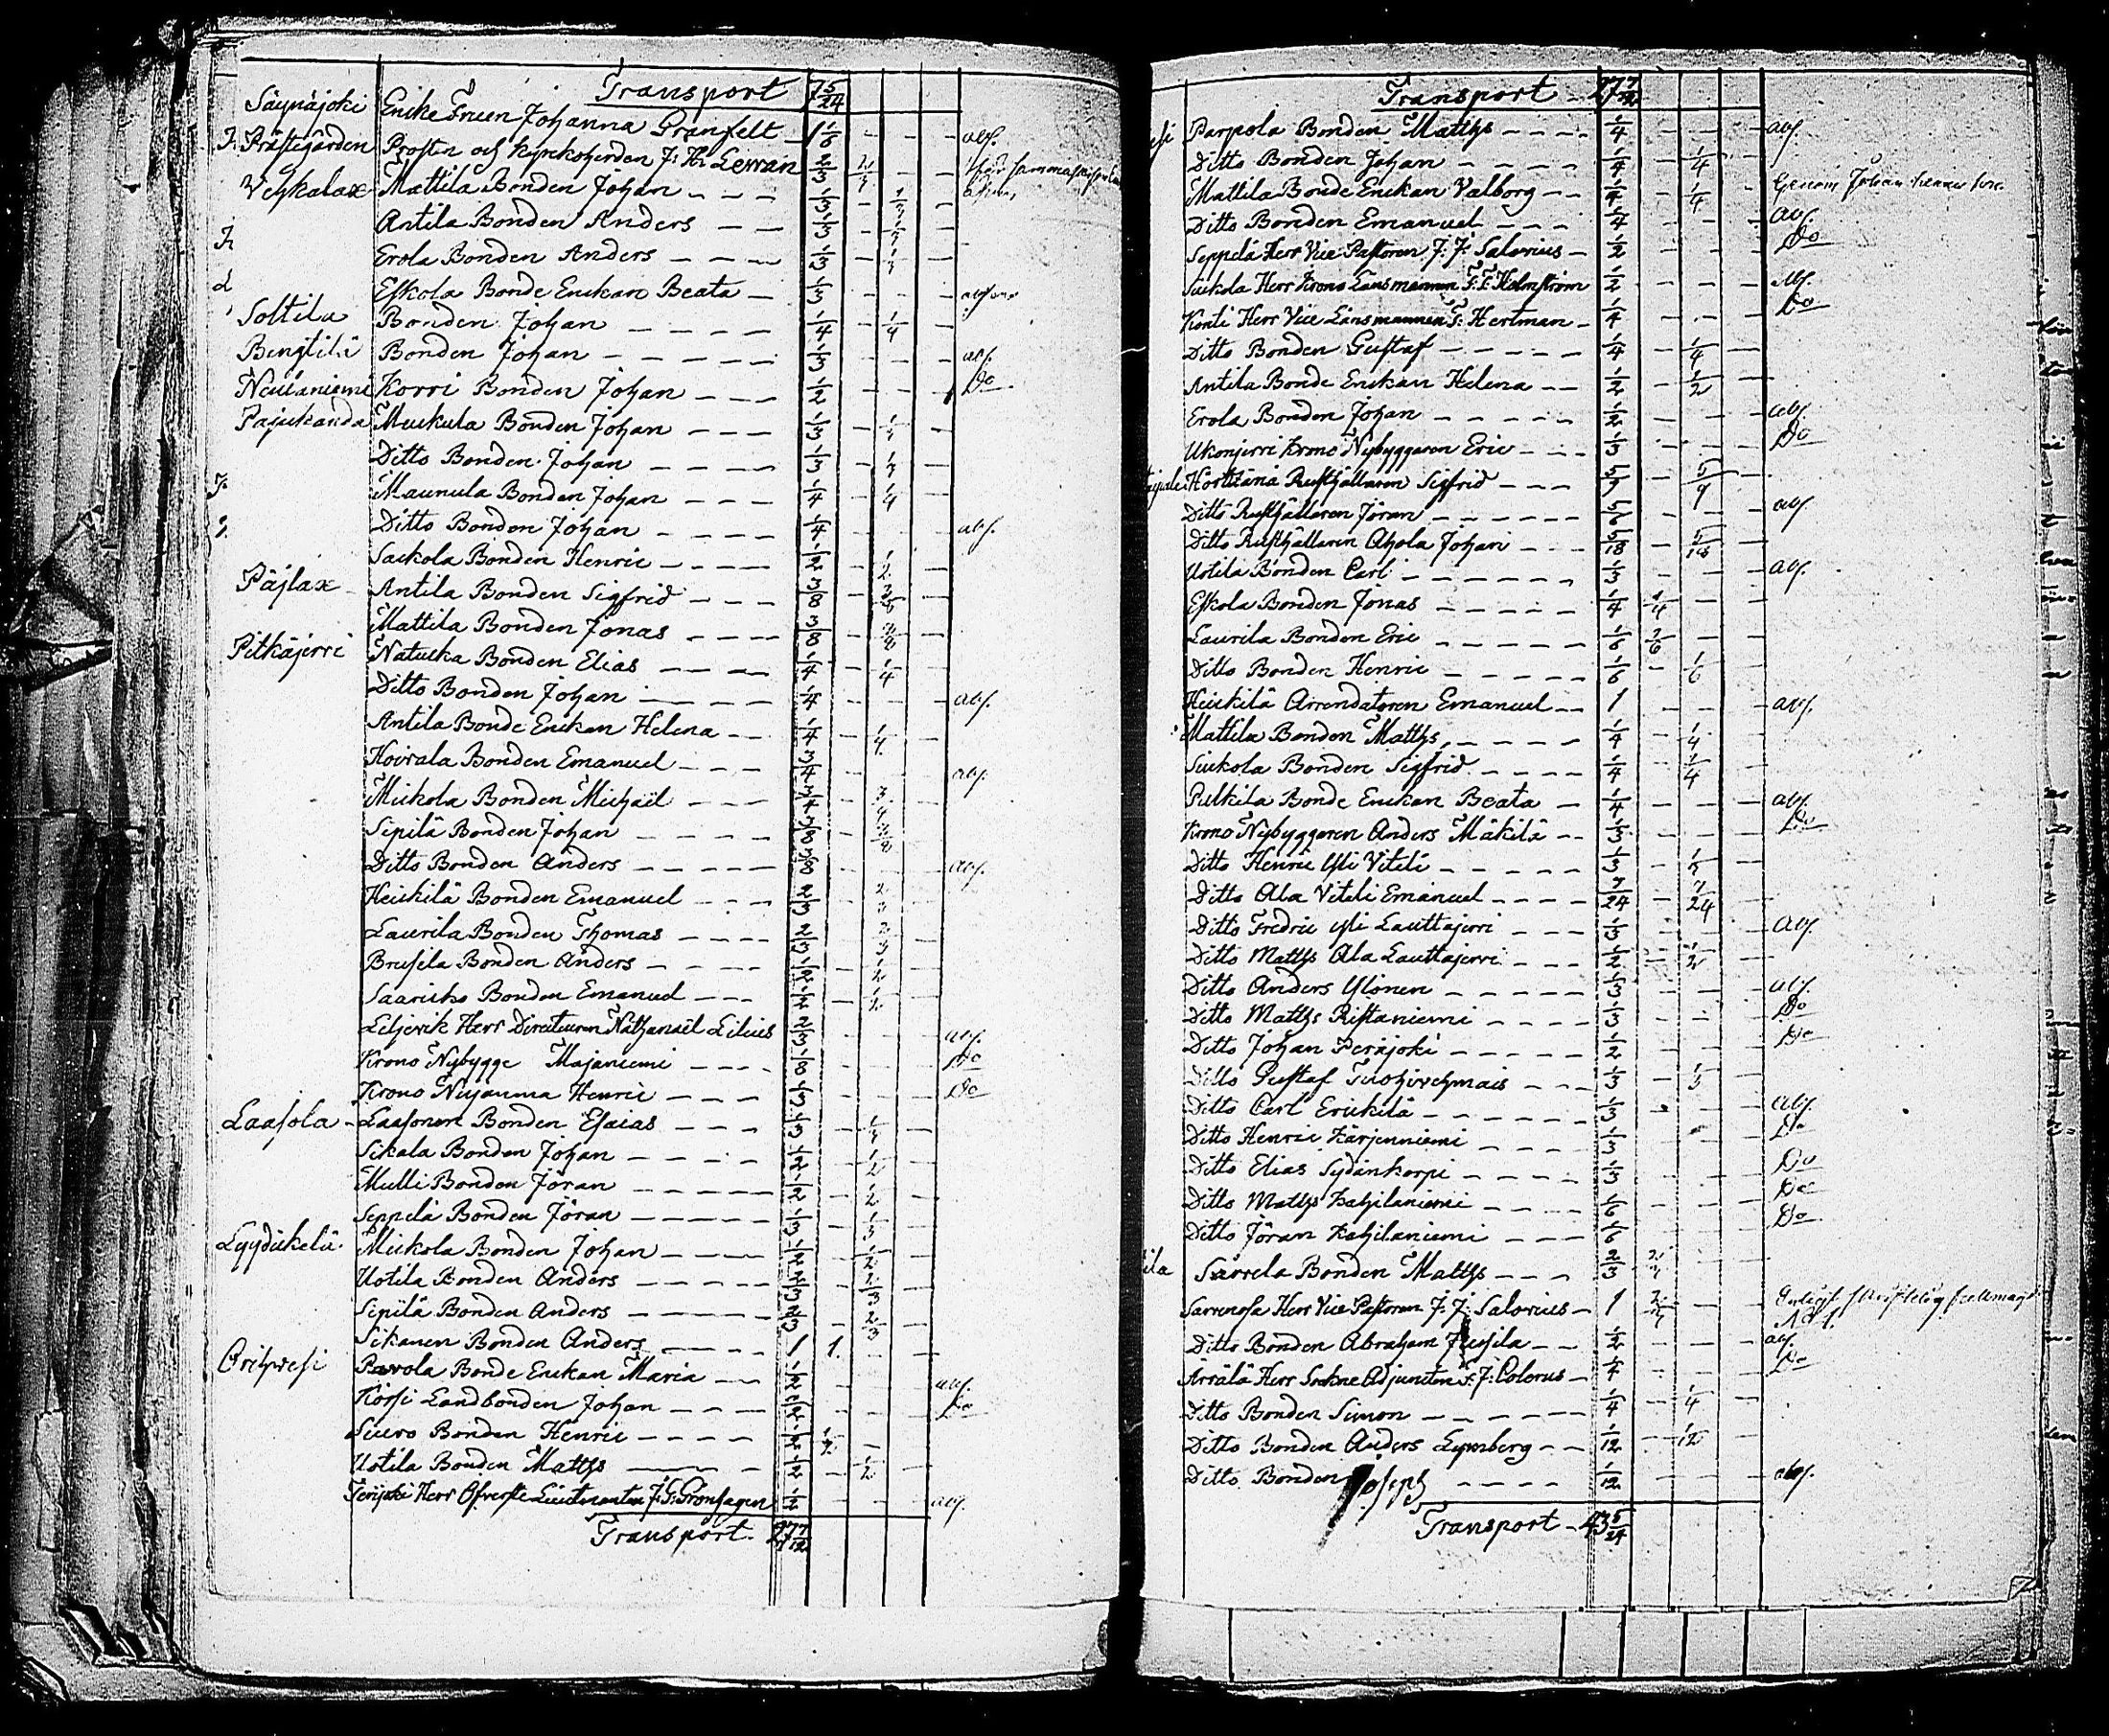 Transport 7 5/24
Säynäjoki Enke Fruen Johanna Granfelt 1 1/6 - - - abs.
Prästegården Prosten och Kyrkoherden J: H: Lewan 2/3 2/3 - -
Veskalax Mattila Bonden Johan - - - 1/3 - 1/3 -
Antila Bonden Anders - - 1/3 - 1/3 -
Erola Bonden Anders - - - 1/3 - 1/3 -
Eskola Bonde Enckan Beata - 1/3 - - -
Soltila Bonden Johan - - - - 1/4 - 1/4 -
Bengtilä Bonden Johan - - - - - 1/3 - - - abs.
Neulaniemi Korri Bonden Johan - - - 1/2 - - - Do
Pajukanda Muckula Bonden Johan - - - 1/3 - 1/3 -
Ditto Bonden Johan - - - - 1/3 - 1/3 -
Maunula Bonden Johan - - - 1/4 - 1/4 -
Ditto Bonden Johan - - - - 1/4 - - - abs.
Sackola Bonden Henric - - - - 1/2 - 1/2 -
Päjlax Antila Bonden Sigfrid - - - 3/8 - 3/8 -
Mattila Bonden Jonas - - - - 3/8 - 3/8 -
Pitkäjerri Natucka Bonden Elias - - - - 1/4 - 1/4 -
Ditto Bonden Johan - - - - 1/4 - - - abs.
Antila Bonde Enckan Helena - - 1/4 - 1/4 -
Hoivala Bonden Emanuel - - - 3/4 - - - abs.
Mickola Bonden Michaël - - - 3/4 - 3/4 -
Sipilä Bonden Johan - - - - 3/8 - 3/8 -
Ditto Bonden Anders - - - - - 3/8 - - - abs.
Heickilä Bonden Emanuel - - - 2/3 - 2/3 -
Laurila Bonden Thomas - - - - 2/3 - 2/3 -
Brusila Bonden Anders - - - - 1/2 - 1/2 -
Saaricko Bonden Emanuel - - - 1/2 - 1/2 -
Liljevik Herr Directeuren Nathanaël Lilius 2/3 - - - abs.
Krono Nybygge Majaniemi - - - - 1/8 - - - Do
Krono Niyanma Henric - - - 1/3 - - - Do
Laasola - Laasonen Bonden Esaias - - - 1/3 - 1/3 -
Sikala Bonden Johan - - - - 1/2 - 1/2 -
Mulli Bonden Jöran - - - - - 1/2 - 1/2 -
Seppelä Bonden Jöran - - - - - 1/3 - 1/3 -
Lyydickelä Mickola Bonden Johan - - - - 1/2 - 1/2 -
Uotila Bonden Anders - - - - - 2/3 - 2/3 -
Sipilä Bonden Anders - - - - - 2/3 - 2/3 -
Sikanen Bonden Anders - - - - 1 1. - -
Orihwesi Pavola Bonde Enckan Maria - - 1/2 - - - abs.
Körsi Landbonden Johan - - - - 1/2 - - - Do
Suuro Bonden Henric - - - - 1/2 1/2 - -
Uotila Bonden Matths - - - 1/2 - 1/2 -
Herr Öfverste Lieutnanten J: F: Grönhagen 1/2 - - - abs.
Transport 27 7/12
Transport 27 7/12
Parpola Bonden Matths - - - - 1/4 - - - abs.
Ditto Bonden Johan - - - - - 1/4 - 1/4 -
Mattila Bonde Enckan Valborg - - 1/4 - 1/4 - Genom Johan
Ditto Bonden Emanuel - - - 1/4 - - - abs.
Seppelä Herr Vice Pastoren J: J: Salovius - 1/2 - - - Do
Suckola Herr Krono Länsmannen F: F: Holmström 1/2 - - - abs.
Konti Herr Vice Länsmannen F: Hertman - 1/4 - - - Do
Ditto Bonden Gustaf - - - - - 1/4 - 1/4 -
Antila Bonde Enckan Helena - - 1/2 - 1/2 -
Erola Bonden Johan - - - - - 1/2 - - - abs.
Ukonjerri Krono Nybyggaren Eric - - - 1/3 - - - Do
Rusthållaren Sigfrid - - - 5/9 - 5/9 -
Ditto Rusthållaren Jöran - - - - - - 5/6 - - - abs.
Ditto Rusthållaren Ahola Johan - - - 5/18 - 5/18 -
Uotila Bonden Carl - - - - - - 1/3 - - - abs.
Eskola Bonden Jonas - - - - - 1/4 1/4 - -
Laurila Bonden Eric - - - - - - 1/6 1/6 - -
Ditto Bonden Henric - - - - - - 1/6 - 1/6 -
Heickilä Arrendatoren Emanuel - - 1 - - - abs.
Mattila Bonden Matths - - - - - 1/4 - 1/4 -
Suckola Bonden Sigfrid - - - - 1/4 - 1/4 -
Pulkila Bonde Enckan Beata - 1/4 - - - abs.
Krono Nybyggaren Anders Mäkilä - - 1/3 - - - Do
Ditto Henric Ysti Viteli - - - - - 1/3 - 1/3 -
Ditto Ala Viteli Emanuel - - - - 7/24 - 7/24 -
Ditto Fredric Ysti Lauttajerri - - - 1/3 - - - abs.
Ditto Matths Ala Lauttajerri - - - 1/2 - 1/2 -
Ditto Anders Ylönen - - - - - 1/3 - - - abs.
Ditto Matths Ristaniemi - - - - 1/3 - - - Do
Ditto Johan Peräjoki - - - - - 1/2 - - - Do
Ditto Gustaf - - - 1/3 - 1/3 -
Ditto Carl Erickilä - - - - - 1/3 - - - abs.
Ditto Henric Kärjenniemi - - - - 1/3 - - - Do
Ditto Elias Sydänkorpi - - - - - 1/3 - - - Do
Ditto Matths Kahilaniemi - - - - 1/6 - - - Do
Ditto Jöran Kahilaniemi - - - - 1/6 - - - Do
Särrelä Bonden Matths - - - 2/3 2/3 - -
Herr Vice Pastoren J: J: Salovius - 1 - -
Ditto Bonden Abraham - - 1/2 - - - abs.
Arrälä Herr Sockne Adjuncten F: J: Colerus - 1/4 - - - Do
Ditto Bonden Simon - - - - - - 1/4 - 1/4 -
Ditto Bonden Anders Lymberg - - 1/12 - 1/12 -
Ditto Bonden Joseph - - - - 1/12 - - - abs.
Transport - 43 5/24